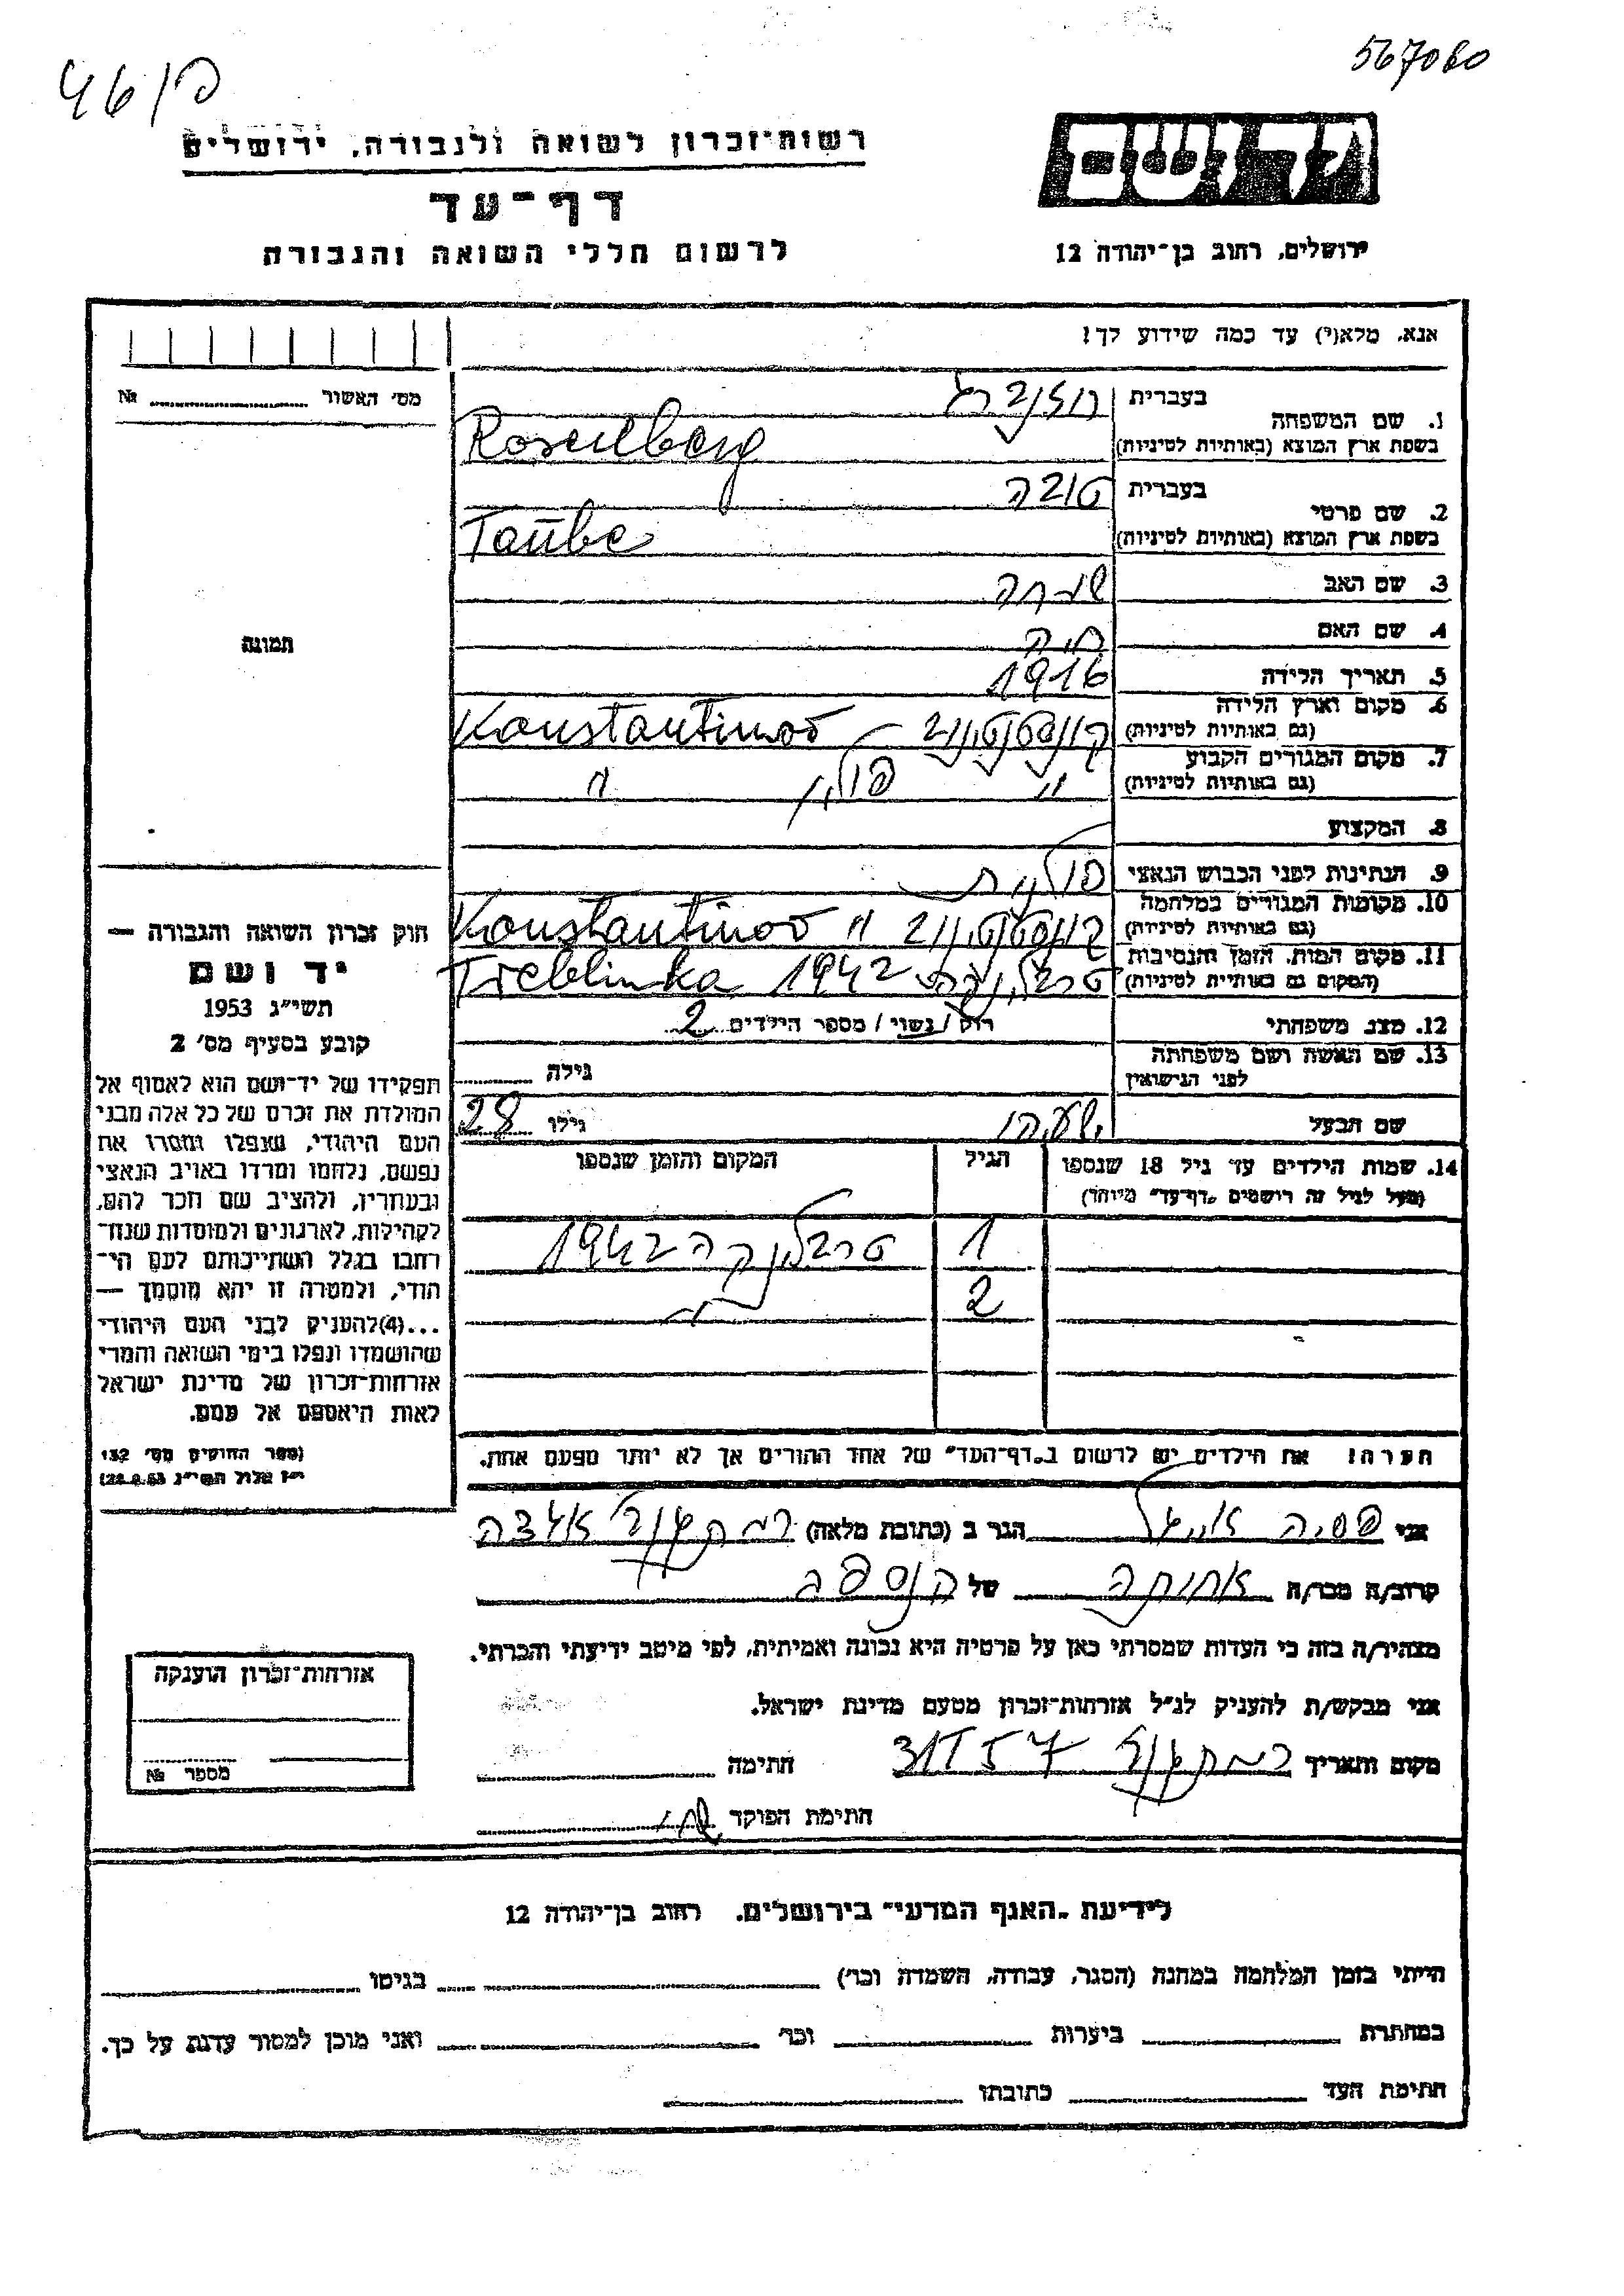 567080
46/פ
יד ושם
רשות־זכרון לשואה ולגבורה, ירושלים
דף־עד
לרשום חללי השואה והגבורה
ירושלים, רחוב בן־יהודה 12
אנא, מלא(י) עד כמה שידוע לך!
מס׳ האשור №
1. שם המשפחה בעברית רוזנברג
בשפת ארץ המוצא (באותיות לטיניות) Rosenberg
2. שם פרטי בעברית טובה
בשפת ארץ המוצא (באותיות לטיניות) Taube
3. שם האב שמחה
4. שם האם חיה
5. תאריך הלידה 1916
6. מקום וארץ הלידה (גם באותיות לטיניות) קונסטנטינוב – Konstantinow
7. מקום המגורים הקבוע (גם באותיות לטיניות) " פולין "
8. המקצוע
9. הנתינות לפני הכבוש הנאצי פולנית
10. מקומות המגורים במלחמה (גם באותיות לטיניות) קונסטנטינוב " Konstantinow
11. מקום המות, הזמן והנסיבות (המקום גם באותיות לטיניות) טרבלינקה 1942 Treblinka
12. מצב משפחתי רוק / נשוי / מספר הילדים 2
13. שם האשה ושם משפחתה לפני הנישואין גילה
שם הבעל גילו 28
14. שמות הילדים עד גיל 18 שנספו הגיל המקום והזמן שנספו
(מעל לגיל זה רושמים „דף־עד״ מיוחד)
1 טרבלינקה 1942
2 "
הערה: את הילדים יש לרשום ב„דף־העד״ של אחד ההורים אך לא יותר מפעם אחת.
תמונה
חוק זכרון השואה והגבורה —
יד ושם
תשי״ג 1953
קובע בסעיף מס׳ 2
תפקידו של יד־ושם הוא לאסוף אל
המולדת את זכרם של כל אלה מבני
העם היהודי, שנפלו ומסרו את
נפשם, נלחמו ומרדו באויב הנאצי
ובעוזריו, ולהציב שם וזכר להם,
לקהילות, לארגונים ולמוסדות שנח־
רבו בגלל השתייכותם לעם הי־
הודי, ולמטרה זו יהא מוסמך —
...(4) להעניק לבני העם היהודי
שהושמדו ונפלו בימי השואה והמרי
אזרחות־זכרון של מדינת ישראל
לאות היאספם אל עמם.
(ספר החוקים מס׳ 132
י״ז אלול תשי״ג 28.8.53)
אני הגר ב (כתובת מלאה)
קרוב/ה מכר/ה אחותה של הנספה
מצהיר/ה בזה כי העדות שמסרתי כאן על פרטיה היא נכונה ואמיתית, לפי מיטב ידיעתי והכרתי.
אני מבקש/ת להעניק לנ״ל אזרחות־זכרון מטעם מדינת ישראל.
מקום ותאריך 57 חתימה
חתימת הפוקד
אזרחות־זכרון הוענקה
מספר №
לידיעת „האגף המדעי״ בירושלים, רחוב בן־יהודה 12
הייתי בזמן המלחמה במחנה (הסגר, עבודה, השמדה וכו׳) בגיטו
במחתרת ביערות וכו׳ ואני מוכן למסור עדות על כך.
חתימת העד כתובתו